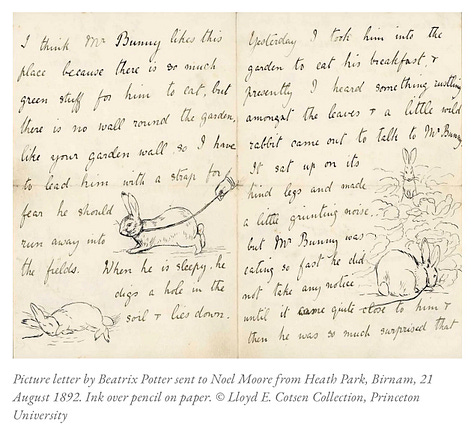 I think Mr Bunny likes this
place because there is so much
green stuff for him to eat, but
there is no wall round the garden,
like your garden wall so I have
to lead him with a strap for
fear he should
run away into
the fields. When he is sleepy, he
digs a hole in the
soil & lies down.
Yesterday I took him into the
garden to eat his breakfast, &
presently I heard something rustling
amongst the leaves & a little wild
rabbit came out to talk to Mr Bunny
It sat up on its
hind legs and made
a little grunting noise,
but Mr Bunny was
eating so fast he did
not take any notice
until it came quite close to him &
then he was so much surprised that
Picture letter by Beatrix Potter sent to Noel Moore from Heath Park, Birnam, 21
August 1892. Ink over pencil on paper. © Lloyd E. Cotsen Collection, Princeton
University